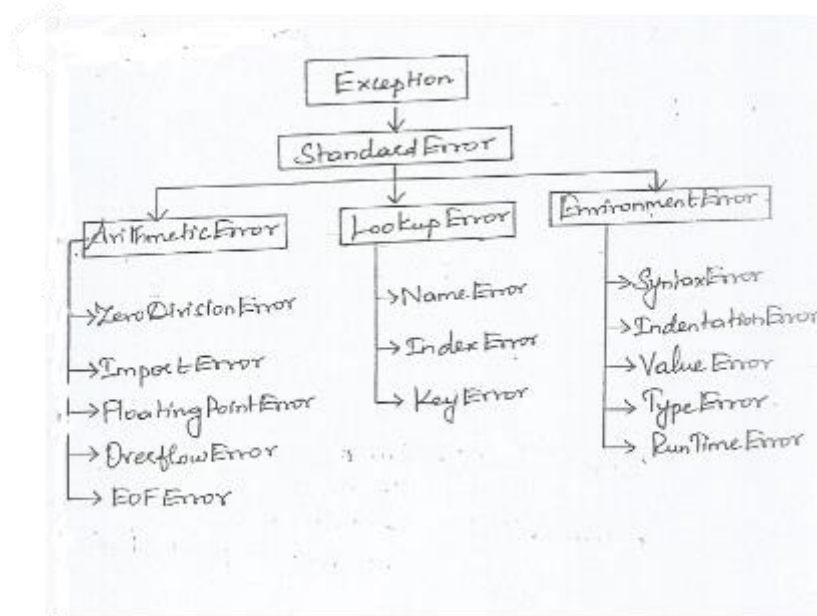 Exception
StandardError
ArithmeticError
LookupError
EnvironmentError
ZeroDivisionError
ImportError
FloatingPointError
OverflowError
EOFError
NameError
IndexError
KeyError
SyntaxError
IndentationError
ValueError
TypeError
RunTimeError